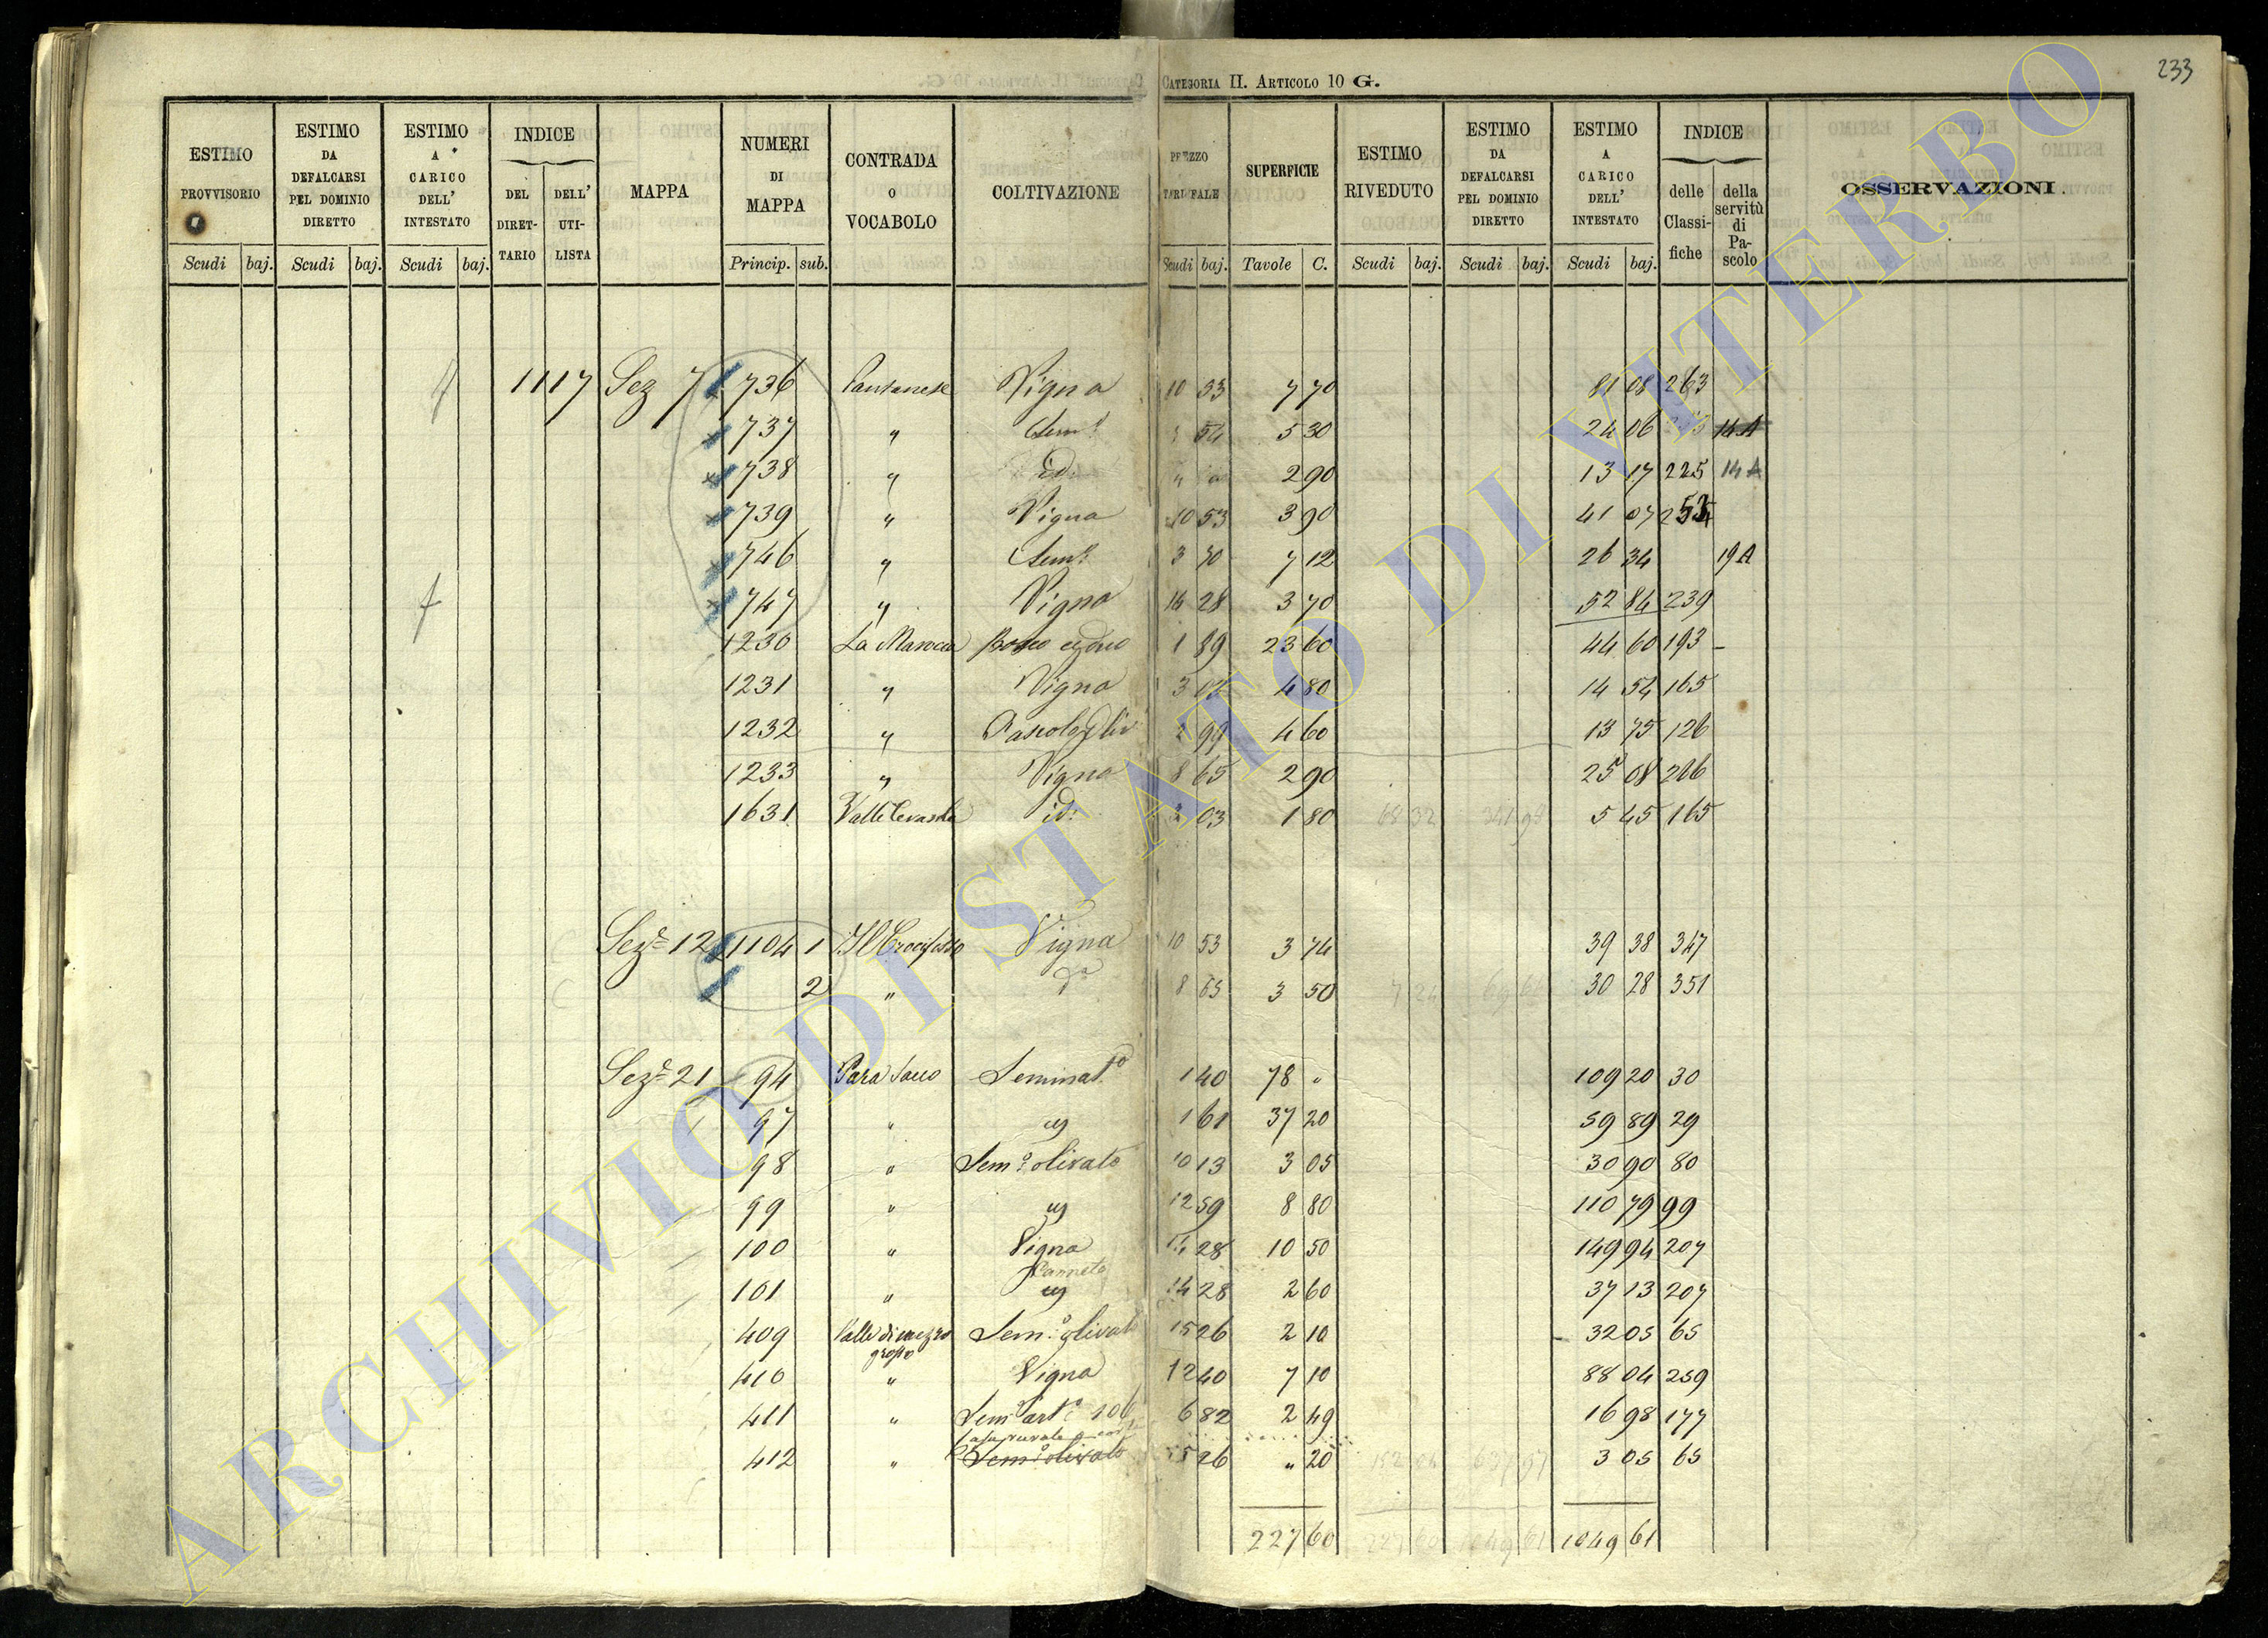 CATEGORIA II. ARTICOLO 10 G.
233
ESTIMO PROVVISORIO
ESTIMO DA DEFALCARSI PEL DOMINIO DIRETTO
ESTIMO A CARICO DELL' INTESTATO
INDICE
DEL DIRETTARIO
DELL' UTILISTA
MAPPA
NUMERI DI MAPPA
CONTRADA O VOCABOLO
COLTIVAZIONE
PREZZO TARIFFALE
SUPERFICIE
ESTIMO RIVEDUTO
ESTIMO DA DEFALCARSI PEL DOMINIO DIRETTO
ESTIMO A CARICO DELL' INTESTATO
INDICE
delle Classifiche
della servitù di Pascolo
OSSERVAZIONI.
Scudi baj. Scudi baj. Scudi baj. Princip. sub. Scudi baj. Tavole C. Scudi baj. Scudi baj. Scudi baj.
1117 Sez 7 736 Pantanese Vigna 10 53 7 70 81 08 263
737 " Sem.o 54 5 30 24 06 14 A
738 " id. 2 90 13 17 225 14 A
739 " Vigna 10 53 3 90 41 07
746 " Sem.o 3 70 7 12 26 34 19 A
747 " Vigna 14 28 3 70 52 84 239
1230 La Marocca Bosco ceduo 1 89 23 60 44 60 193
1231 " Vigna 3 4 80 14 54 165
1232 " Pascolo Oliv 2 99 4 60 13 75 126
1233 " Vigna 8 65 2 90 25 08
1631 Valle id: 3 03 1 80 68 32 341 98 5 45 165
Sez.e 12 1104 1 Il Crocifisso Vigna 10 53 3 74 39 38 347
2 " d.a 8 65 3 50 7 24 69 66 30 28 351
Sez.e 21 94 Para Sacco Seminat.o 1 40 78 " 109 20 30
97 " id 1 61 37 20 59 89 29
98 " Sem.o olivato 10 13 3 05 30 90 80
99 " id 12 59 8 80 110 79 99
100 " Vigna 14 28 10 50 149 94 207
Canneto
101 " id 14 28 2 60 37 13 207
409 Valle di mezzo grosso Sem.o olivato 15 26 2 10 32 05 65
410 " Vigna 12 40 7 10 88 04 259
411 " Sem.o art.o 6 82 2 49 16 98 177
Casa rurale
412 " Sem.o olivato 15 26 " 20 152 04 637 97 3 05 65
227 60 227 60 1049 61 1049 61
ARCHIVIO DI STATO DI VITERBO